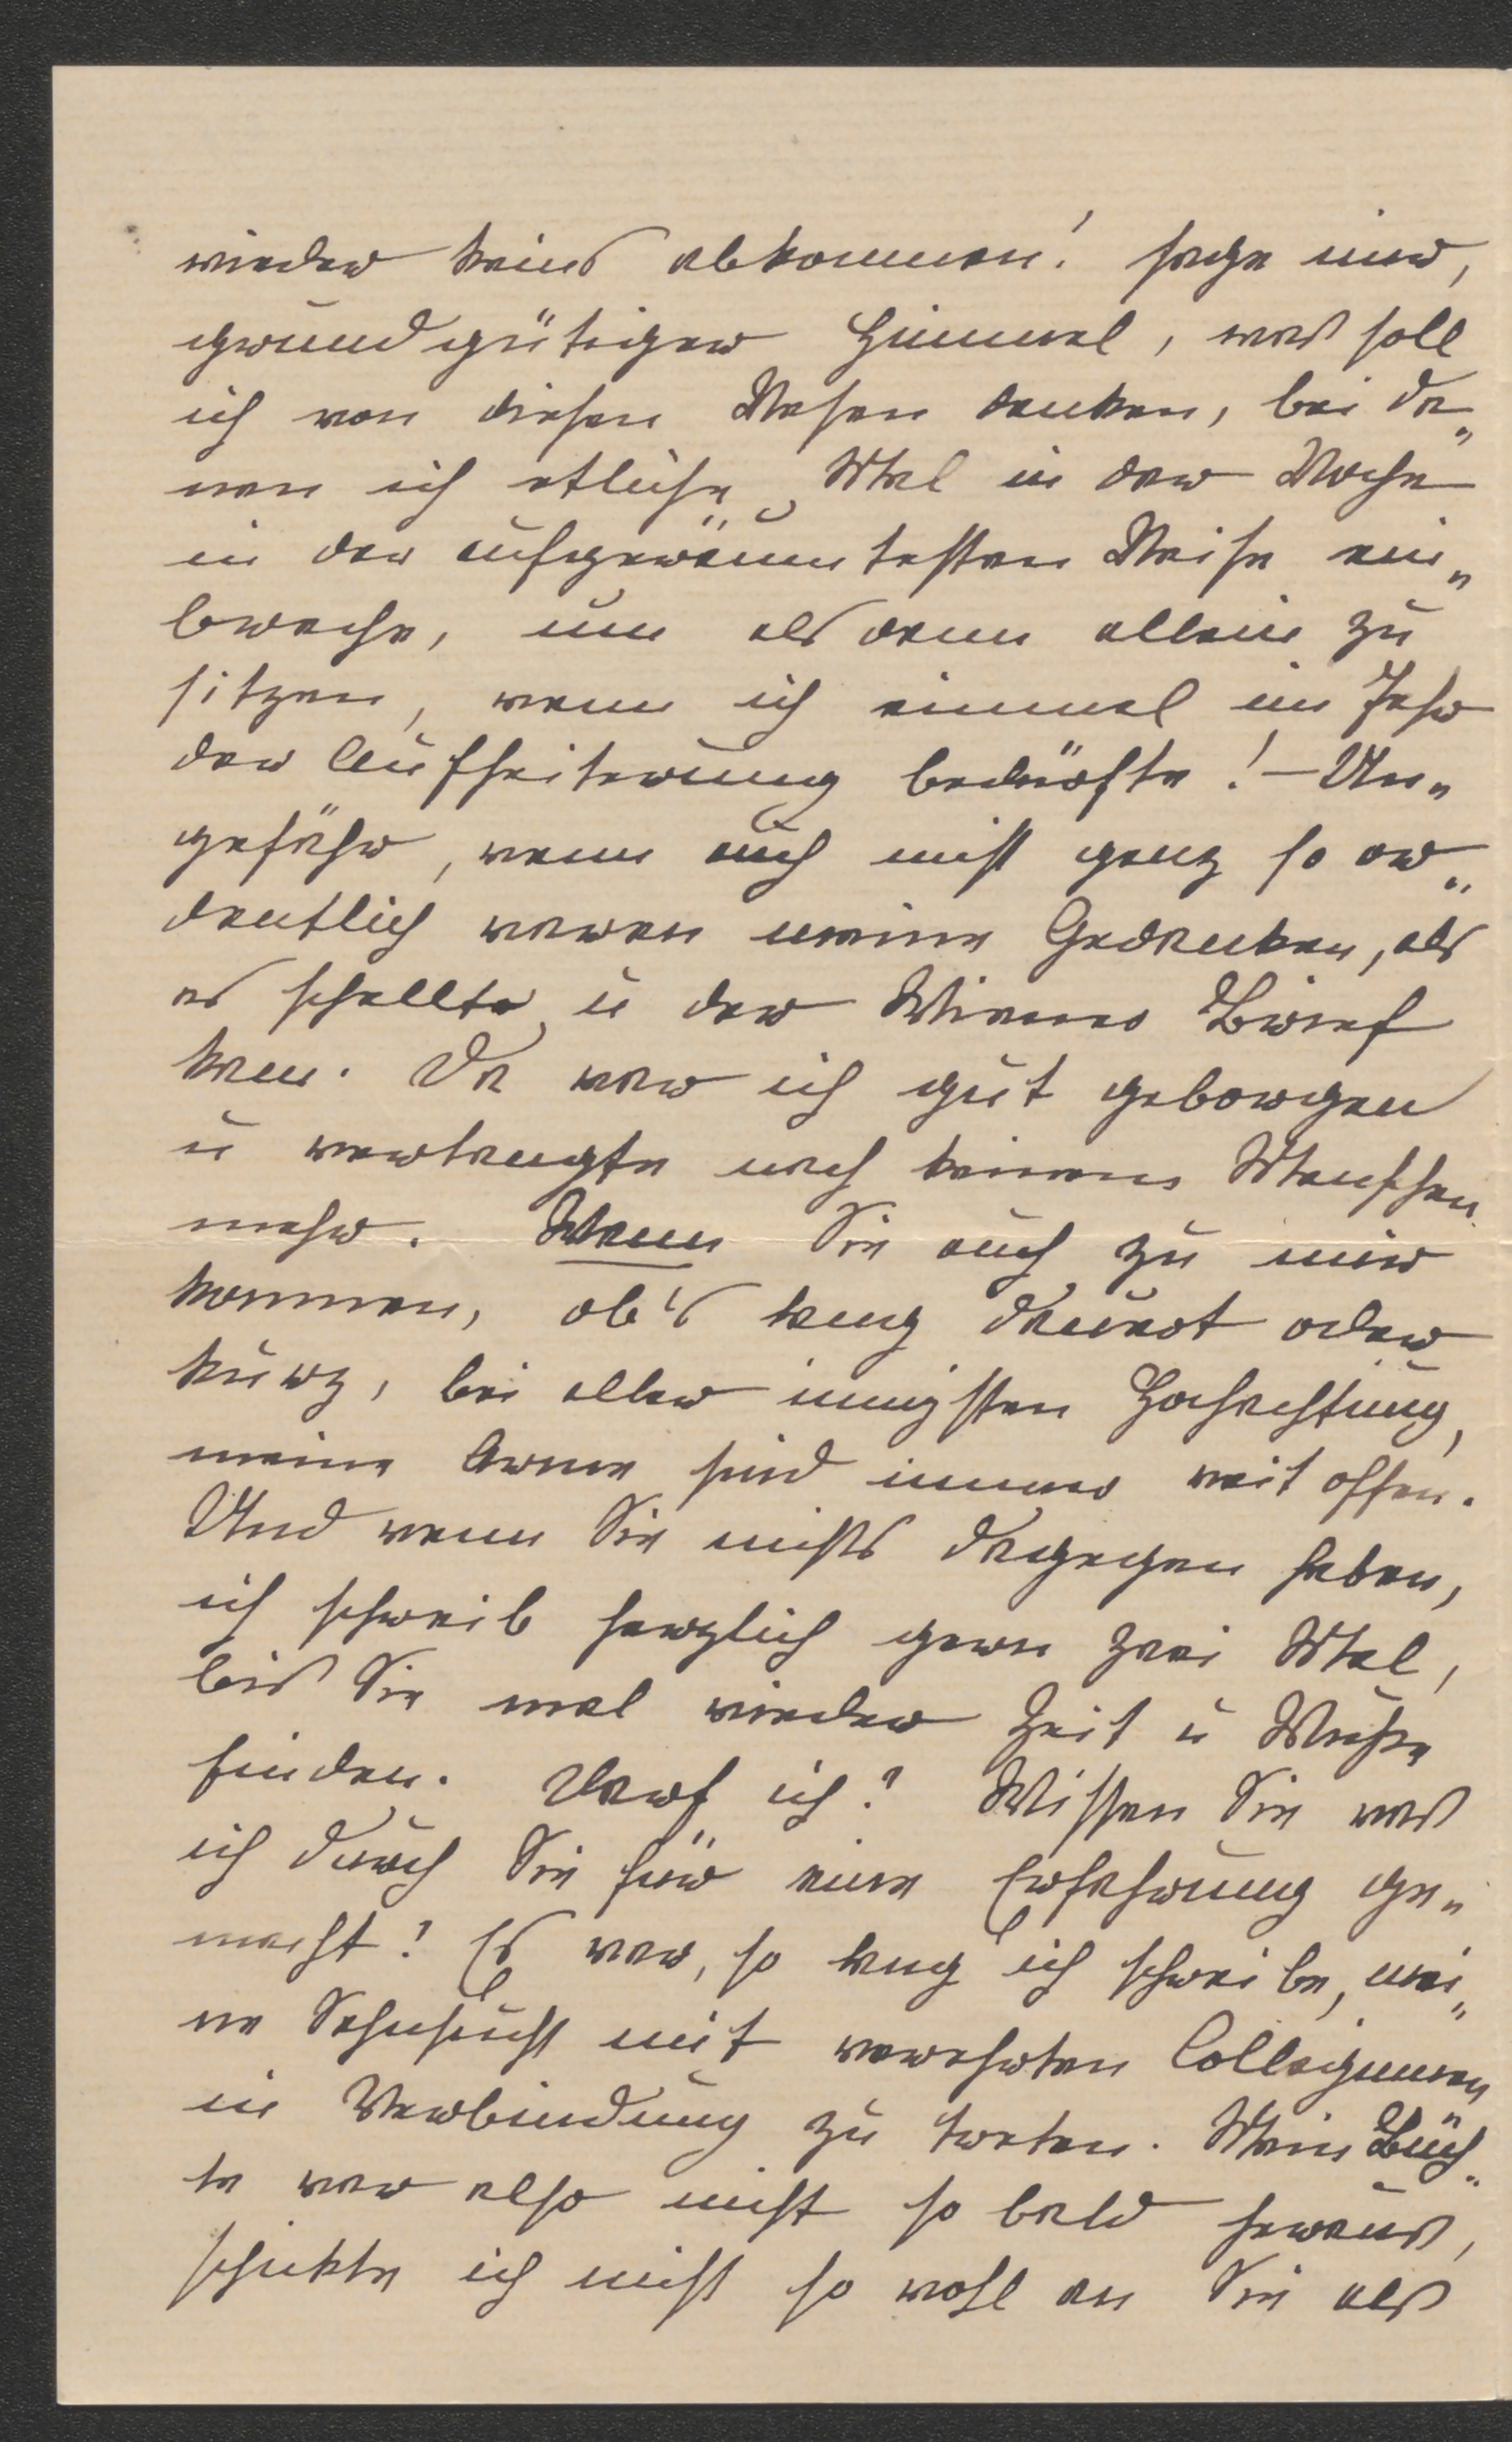 wieder keins abkommen! sage nur,
grundgütiger Himmel, was soll
ich von diesen Wesen denken, bei de„
nen ich etliche Mal in der Woche
in der aufgeräumtesten Weise ein„
breche, um als dann allein zu
sitzen, wenn ich einmal im Jahr
der Aufheiterung bedürfte! – Un„
gefähr, wenn auch nicht ganz so or„
dentlich waren meine Gedanken, als
es schellte u der Wiener Brief
kam. Da war ich gut geborgen
u verlangte nach keinem Menschen
mehr. Wann Sie auch zu mir
kommen, ob's lang dauert oder
kurz, bei aller innigsten Hochachtung,
meine Arme sind immer weit offen.
Und wenn Sie nichts dagegen haben,
ich schreib herzlich gern zwei Mal,
bis Sie mal wieder Zeit u Muße
finden. Darf ich? Wissen Sie was
ich durch Sie für eine Erfahrung ge„
macht? Es war, so lang ich schreibe, mei„
ne Sehnsucht mit verehrten Colleginnen
in Verbindung zu treten. Mein Büch„
le war also nicht so bald heraus,
schickte ich nicht so wohl an Sie als